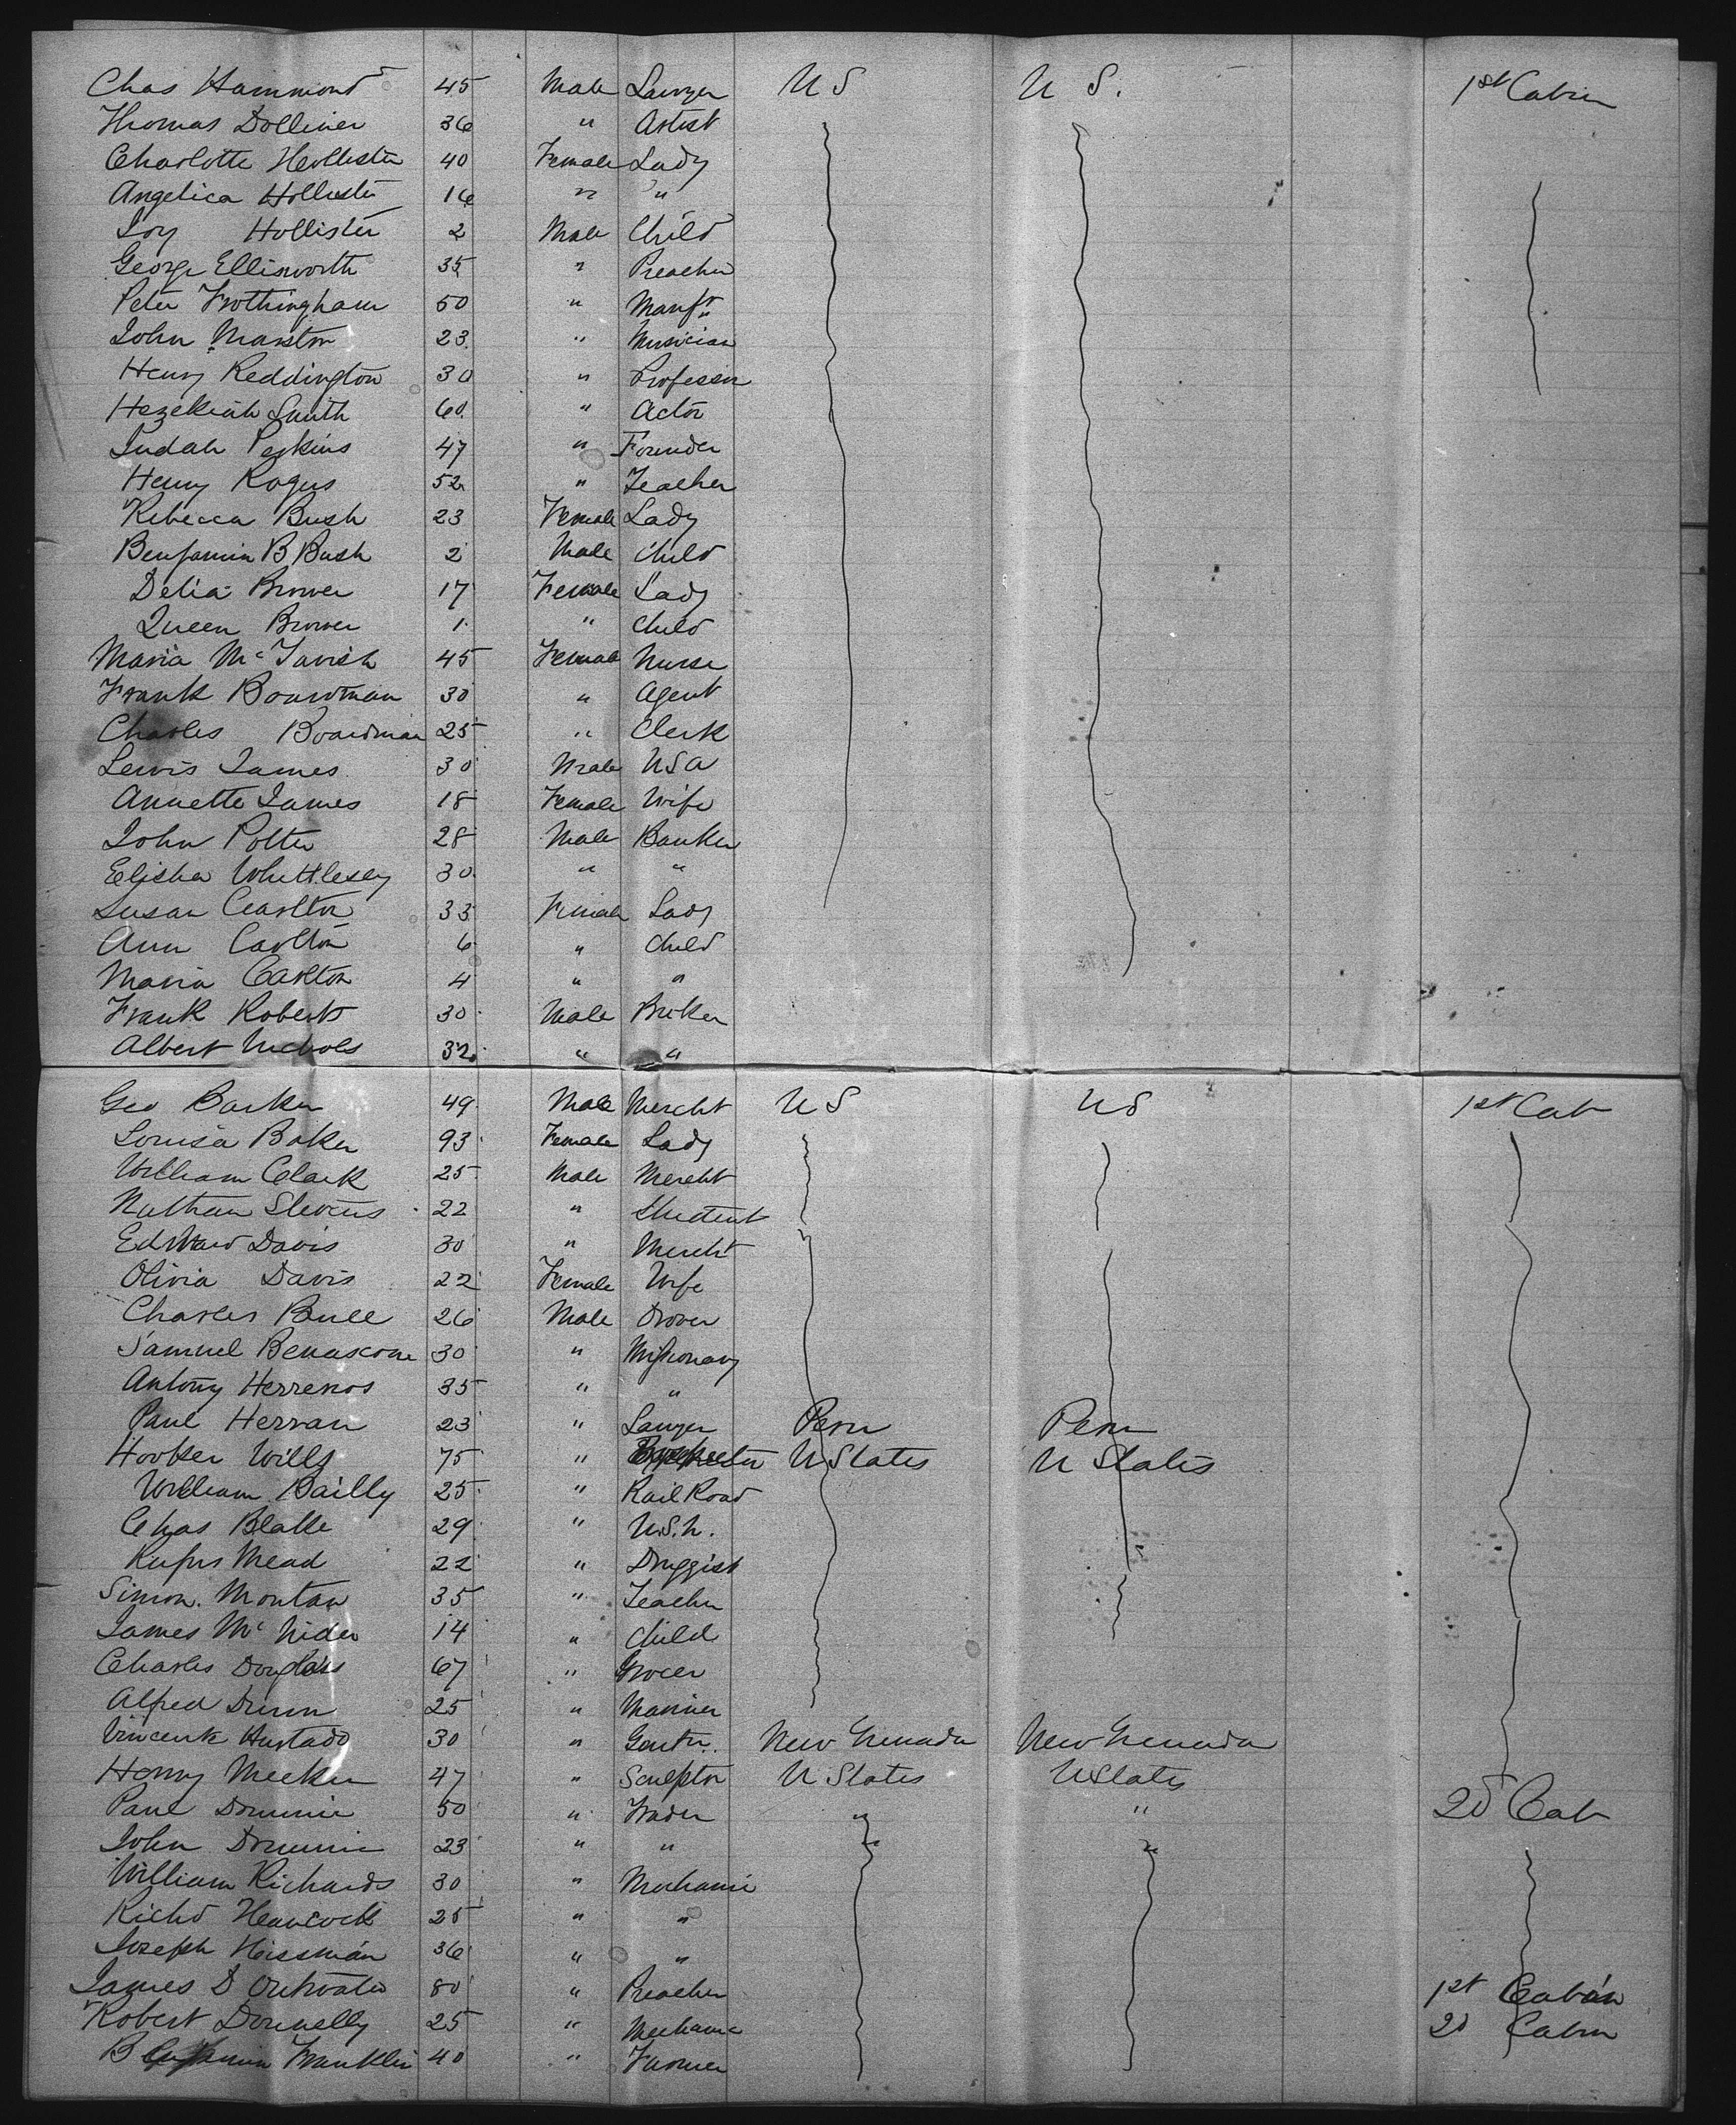 Chas Hammond 45 Male Lawyer U S U S. 1st Cabin
Thomas Dolliner 36 " Artist
Charlotte Hollister 40 Female Lady
Angelica Hollister 16 " "
Joy Hollister 2 Male Child
George Ellisworth 35 " Preacher
Peter Frothingham 50 " Manfr
John Marston 23 " Musician
Henry Reddington 30 " Professor
Hezekiah Smith 60 " Actor
Judah Perkins 47 " Founder
Henry Rogers 52 " Teacher
Rebecca Bush 23 Female Lady
Benjamin B Bush 2 Male Child
Delia Brower 17 Female Lady
Queen Brower 1 " Child
Maria McTavish 45 Female Nurse
Frank Boardman 30 " Agent
Charles Boardman 25 " Clerk
Lewis James 30 Male USA
Annette James 18 Female Wife
John Potter 28 Male Banker
Elisha Whittlesey 30 " "
Susan Carlton 33 Female Lady
Ann Carlton 6 " Child
Maria Carlton 4 " "
Frank Roberts 30 Male Broker
Albert Nichols 32 " "
Geo Barker 49 Male Mercht U S U S 1st Cab
Louisa Baker 93 Female Lady
William Clark 25 Male Mercht
Nathan Stevens 22 " Student
Edward Davis 30 " Mercht
Olivia Davis 22 Female Wife
Charles Bull 26 Male Drover
Samuel Benascone 30 " Missionary
Antony Herreros 35 " "
Paul Herran 23 " Lawyer Peru Peru
Hooker Wills 75 " U States U States
William Bailly 25 " Rail Road
Chas Blake 29 " U.S.N.
Rufus Mead 22 " Druggist
Simon Montan 35 " Teacher
James McNider 14 " Child
Charles Douglass 67 " Grocer
Alfred Dunn 25 " Mariner
Vincente Hurtado 30 " Gentn. New Grenada New Grenada
Henry Meeker 47 " Sculptor U States U States
Paul Dominic 50 " Trader " " 2d Cab
John Dominic 23 " " " "
William Richards 30 " Mechanic
Richd Heancock 25 " "
Joseph Heissman 36 " "
James D Outwater 80 " Preacher 1st Cabin
Robert Donnelly 25 " Mechanic 2d Cabin
Benjamin Franklin 40 " Farmer